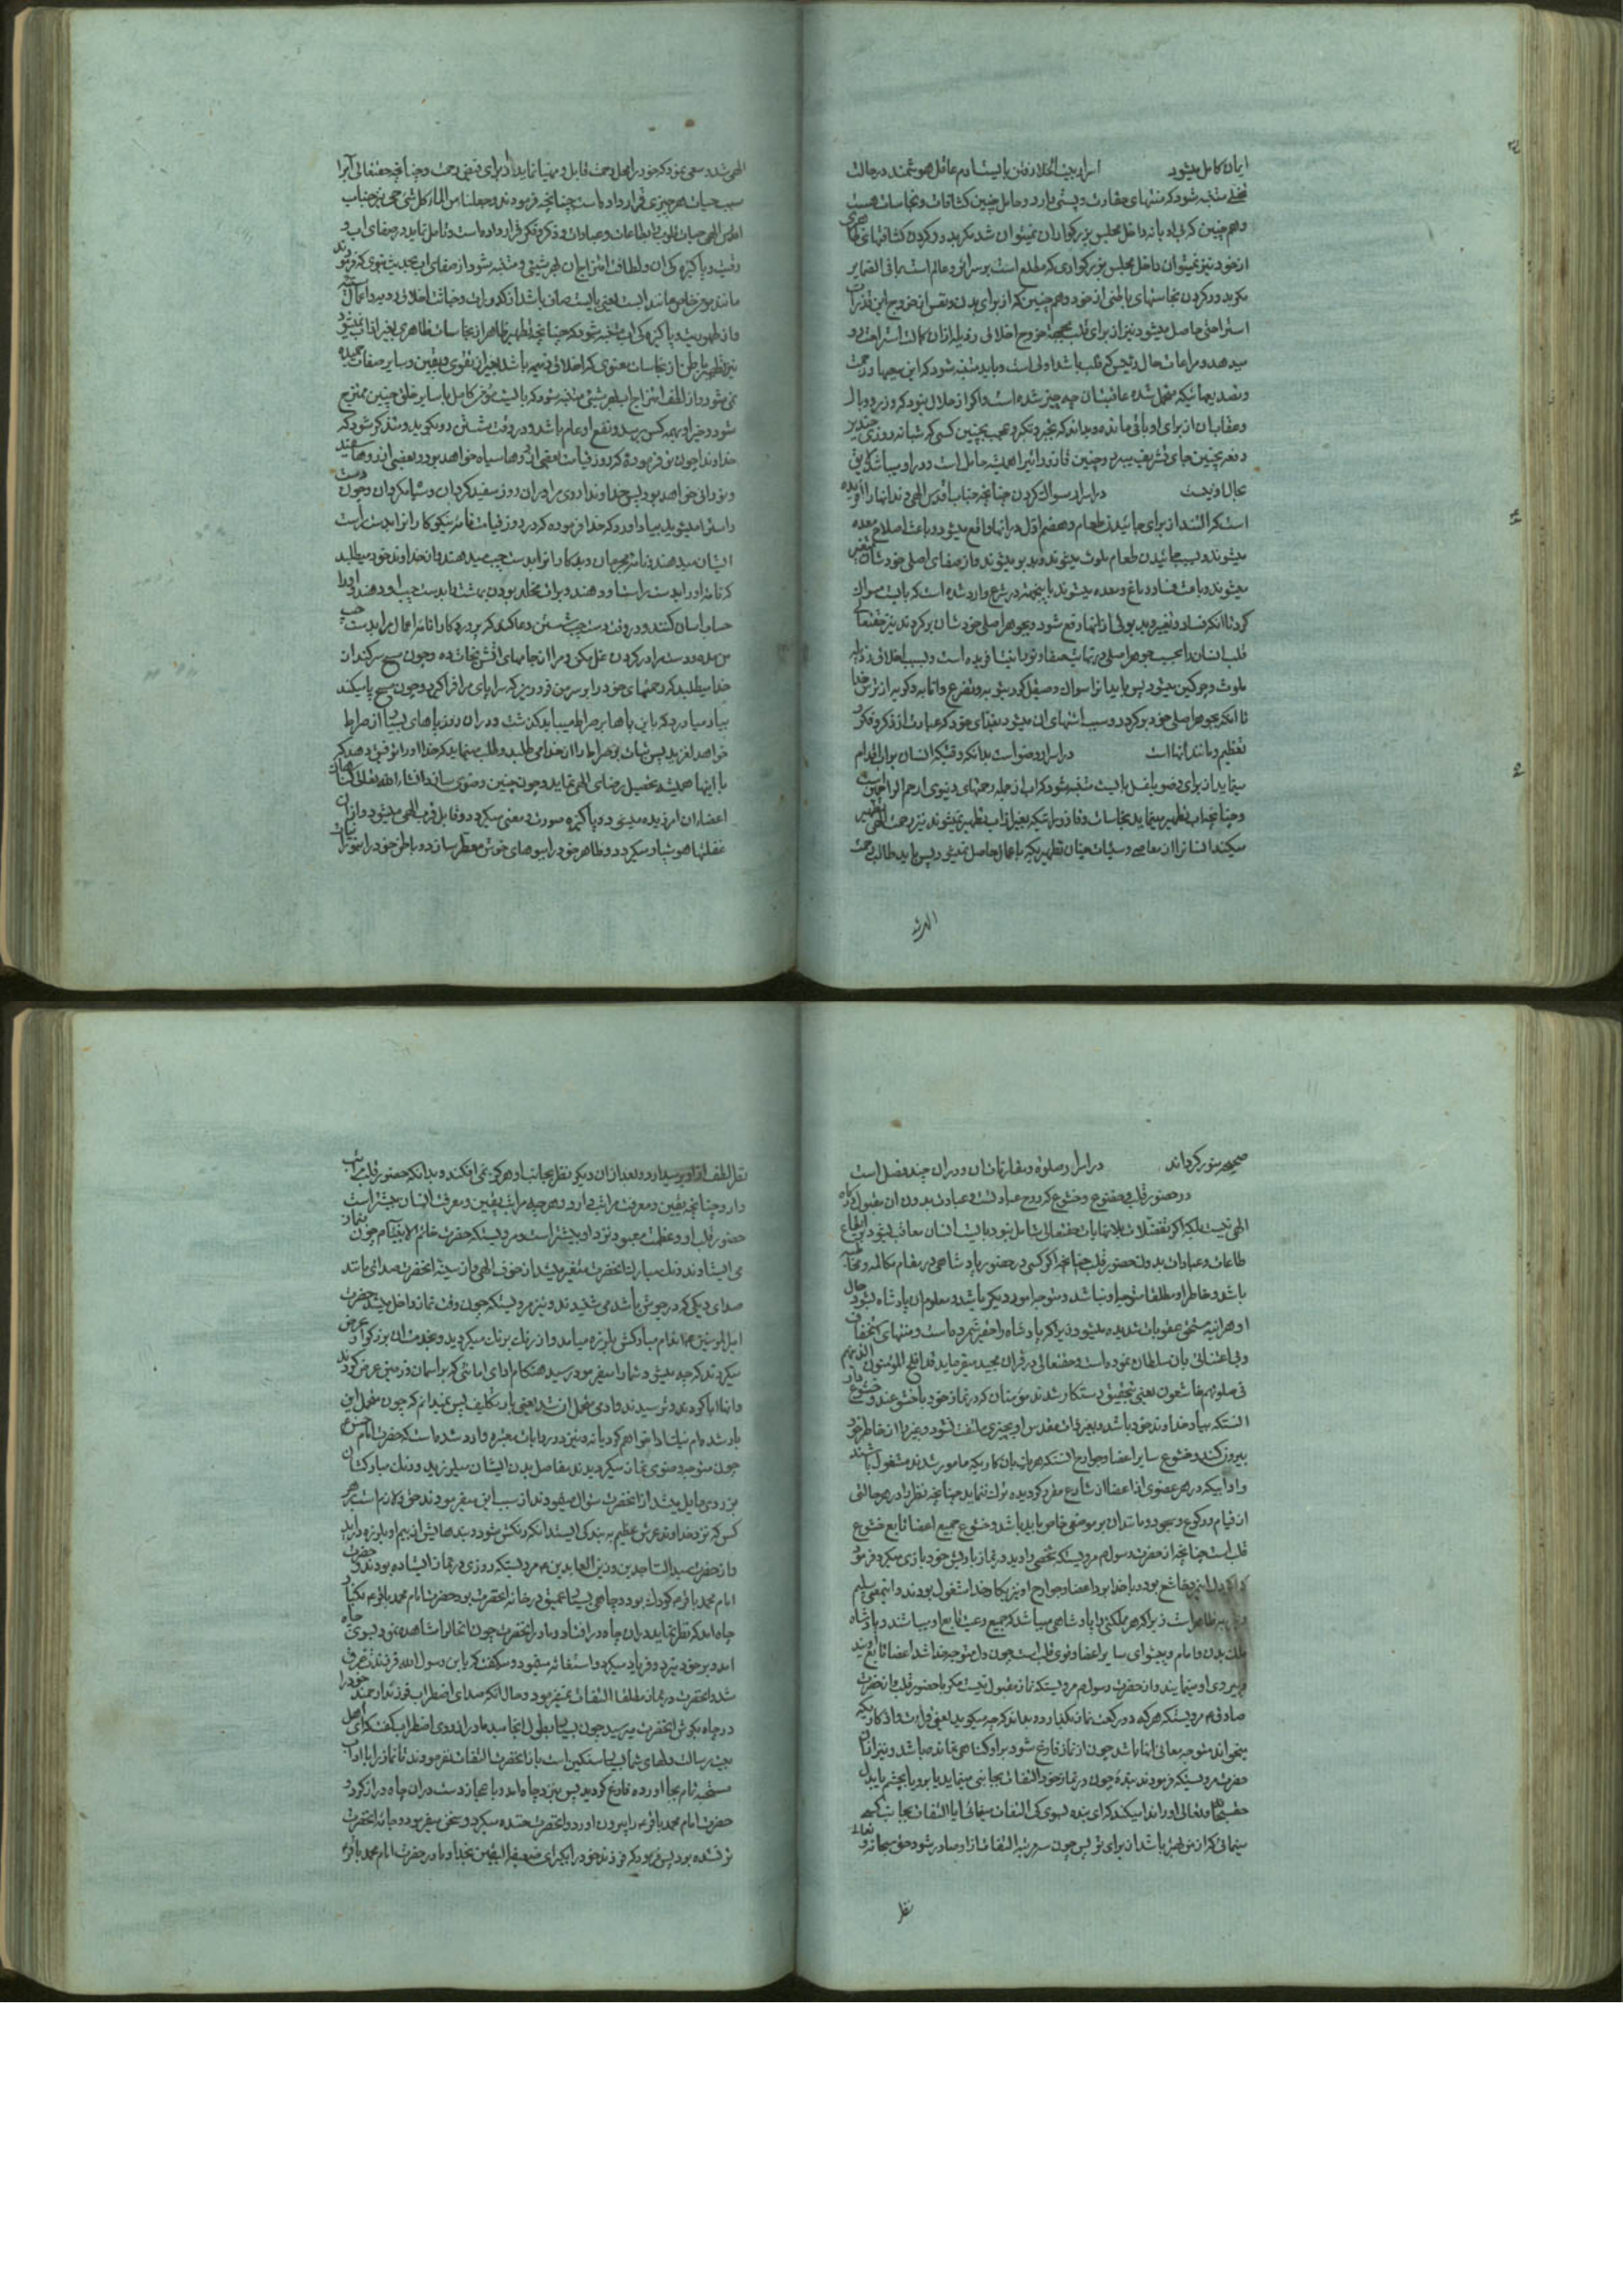 ایمان کامل میشود اسرار بیت الخلا رفتن بایست ادم عاقل هوشمند در حالت
تخلی متنبه شود که منتهای حقارت و پستی دارد و حامل چنین کثافات و نجاسات هست
و هم چنین که
از خود نیز نمیتوان داخل مجلس بزرکواری که مطلع است بر سرائر و عالم است بما فی الضمایر
مکر بدور کردن نجاستهای باطنی از خود و هم چنین که از برای بدن و نفس از خروج این قذرات
استراحتی حاصل میشود نیز از برای قلب بجهة خروج اخلاق رذیله از ان کمال استراحت رو
میدهد و مراعات حال رئیس که قلب باشد اولی است و باید متنبه شود که این
و تصدیعهائیکه متحمل شده عاقبتان چه چیز شده است و اکر از حلال نبود که وزر و وبال
و عقاب ان از برای او باقی مانده و بداند که تجبر و تکبر و عجب بچنین کسی که شبانه روزی چندین
دفعه بچنین جای تشریف میبرد و چنین قاذورات را همیشه حامل است و در او میباشد لایق
بحال او نیست در اسرار مسواک کردن چنانچه جناب اقدس الهی دندانها را افریده
است که التند از برای جائیدن طعام و هضم اول در انها واقع میشود و باعث اصلاح معده
میشوند و بسبب جائیدن طعام ملوث میشوند و بدبو میشوند و از صفای اصلی خودشان متغیر
میشوند و باعث فساد دماغ و معده میشوند باینجهة در شرع وارد شده است که بایست مسواک
کرد تا انکه فساد و تغیر و بدبوئی از انها رفع شود و بجوهر اصلی خودشان برکردند نیز حقتعالی
قلب انسان را بحسب جوهر اصلی در نهایت صفا و نورانیت افریده است و بسبب اخلاق رذیله
ملوث و چرکین میشود پس باید انرا مسواک و صیقل کرد بتوبه و تضرع و انابه و کریه از ترس خدا
تا انکه بجوهر اصلی خود برکردد و سبب اشتهای ان میشود بغذای خود که عبارت از ذکر و فکر و
تعظیم و مانند انها است در اسرار وضو است بدانکه وقتیکه انسان بوان اقدام
مینماید از برای وضو یا غسل بایست متنبه شود که اب از جمله رحمتهای دنیوی ارحم الراحمین است
و چنانچه اب تطهیر مینماید نجاسات و قاذورات را که بغیر از اب تطهیر نمیشوند نیز رحمت الهی تطهیر
میکند انسانرا از معاصی و سیئات چنان تطهیریکه باعمال حاصل نمیشود پس باید طالب رحمت
الهی شد و سعی نمود که خود را محل رحمت قابل و مهیا نماید از برای فیض رحمت و چنانچه حقتعالی آبرا
سبب حیات هر چیزی قرار داده است چنانچه فرمودند و جعلنا من الماء کل شئ حی نیز جناب
اقدس الهی حیات قلوب را بطاعات و عبادات و ذکر و فکر قرار داده است و تامل نماید در صفای اب و
رقت و پاکیزه کی ان و لطافت امتزاج ان بهر شیئی و متنبه شود از صفای اب بحدیث نبوی که فرمودند
مانند مومن خاص مانند ابست یعنی بایست صاف باشد از کدورات و خباثت اخلاق ردیه و اعمال سیئه
و از طهوریت و پاکیزه کی اب متنبه شود که چنانچه تطهیر ظاهر از نجاسات ظاهری بغیر از اب نمیشود
نیز تطهیر باطن از نجاسات معنوی که اخلاق ذمیمه باشد بغیر از تقوی و یقین و سایر صفات حمیده
نمی شود و از لطف امتزاج اب بهر شیئی متنبه شود که بایست مومن کامل با سایر خلق چنین ممتزج
شود و خیر او بهمه کس برسد و نفع او عام باشد و در وقت شستن رو بکوید و متذکر شود که
خداوندا چون تو فرموده که روز قیامت بعضی از روها سیاه خواهد بود و بعضی از روها سفید
و نورانی خواهد بود پس خداوندا روی مرا در ان روز سفید کردان و سیاه مکردان و چون دست
راست را میشوید بیاد اورد که خدا فرموده که در روز قیامت نامه نیکوکارانرا بدست راست
ایشان میدهند و نامه مجرمان و بدکارانرا بدست چپ میدهند و از خداوند خود میطلبد
که نامه او را بدست راست او دهند و برات مخلد بودن بهشت را بدست چپ او دهند و
حساب اسان کنند و در وقت دست چپ شستن دعا کند که پروردکارا نامه اعمال مرا بدست چپ
من مده و دست مرا در کردن غل مکن و مرا از جامهای اتش نجات ده و چون مسح سر کند از
خدا میطلبد که رحمتهای خود را بر سر من فرو ریز که سراپای مرا فرا کیرد و چون مسح پا میکند
بیاد میاورد که باین پاها بر صراط میباید کذشت و در ان روز پاهای بسیار از صراط
خواهد لغزید پس ثبات بر صراط را از خدا می طلبد و طلب مینماید که خدا او را توفیق دهد که
با اینها همیشه تحصیل رضای الهی نماید و چون چنین وضوی سازد انشاء الله تعالی کناهان
اعضا ان امرزیده میشود و پاکیزه صورت و معنی میکردد و قابل قرب الهی میشود و از ان
غفلتها هوشیار میکردد و ظاهر خود را ببوهای خوش معطر سازد و باطن خود را بنور نیات
صحیحه منور کرداند در اسرار صلوة و مقارنات ان و در ان چند فصل است
در حضور قلب و خضوع و خشوع که روح عبادتست و عبادت بدون ان مقبول درکاه
الهی نیست بلکه اکر تفضلات بلا نهایات حقتعالی شامل نبود بایست انسان معاقب شود بایقاع
طاعات و عبادات بدون حضور قلب چنانچه اکر کسی در حضور پادشاهی در مقام مکالمه و مخاطبه
باشد و خاطر او مطلقا متوجه او نباشد و متوجه امور دیکر باشد و معلوم ان پادشاه بشود حال
او هراینه مستحق عقوبات شدیده میشود زیرا که پادشاه را حقیر شمرده است و منتهای استخفاف
و بی اعتنائی بان سلطان نموده است و حقتعالی در قران مجید میفرماید قد افلح المؤمنون الذینهم
فی صلوتهم خاشعون یعنی بتحقیق رستکار شدند مومنان که در نماز خود با خشوعند و خشوع دل
انستکه بیاد خداوند خود باشد و بغیر ذات مقدس او بچیزی ملتفت نشود و غیر را از خاطر خود
بیرون کند و خشوع سایر اعضا و جوارح انستکه هر یک بان کاریکه مامور شدند مشغول باشند
و ادابیکه در هر عضوی از اعضا از شارع مقرر کردیده ترک ننماید چنانچه نظر را در هر حالتی
از قیام و رکوع و سجود و مانند ان بر موضعی خاص باید باشد و خشوع جمیع اعضا تابع خشوع
قلب است چنانچه از حضرت رسول م مرویستکه شخصی را دید در نماز با ریش خود بازی میکرد فرمود
که اکر دل این خاشع بود و با خدا بود اعضا و جوارح او نیز بکار خدا مشغول بودند و اینمعنی سلیم
ظاهر است زیرا که هر مملکتی را پادشاهی میباشد که جمیع رعیت تابع او میباشند و پادشاه
ملک بدن و امام و پیشوای سایر اعضا و قوی قلب است چون دل متوجه خدا شد اعضا تابع اویند
پیروی او مینمایند و از حضرت رسول م مرویستکه نماز مقبول نیست مکر با حضور قلب و از حضرت
صادق م مرویستکه هر که دو رکعت نماز بکذارد و بداند که چه میکوید یعنی قرائت و اذکاریکه
میخواند متوجه معانی انها باشد چون از نماز فارغ شود بر او کناهی نمانده باشد و نیز از ان
حضرت مرویستکه فرمودند بنده چون در نماز خود التفات بجانبی مینماید یا برو یا بچشم یا بدل
حقسبحانه و تعالی او را ندا میکند که ای بنده بسوی کی التفات مینمائی ایا التفات بجانب کسی
مینمائی که از من بهتر باشد از برای تو پس چون سه مرتبه التفات از او صادر شود حق سبحانه و تعالی
نظر
نظر لطف از او برمیدارد و بعد از ان دیکر نظر بجانب او هرکز نمی افکند و بدانکه حضور قلب مراتب
دارد چنانچه یقین و معرفت مراتب دارد و هر چند مراتب یقین و معرفت انسان بیشتر است
حضور قلب او و عظمت معبود نزد او بیشتر است و مرویستکه حضرت خاتم الانبیا م چون بنماز
می ایستادند رنک مبارک انحضرت متغیر میشد از خوف الهی و از سینه انحضرت صدائی مانند
صدای دیکی که در جوش باشد می شنیدند و نیز مرویستکه چون وقت نماز داخل میشد حضرت
امیرالمومنین م اندام مبارکش بلرزه میامد و از رنک برنک میکردید و بخدمت ان بزرکوار عرض
میکردند که چه میشود شما را میفرمود رسید هنکام ادای امانتی که بر اسمان و زمین عرض کردند
و انها ابا کردند و ترسیدند و ادمی متحمل ان شد یعنی بار تکلیف پس نمیدانم که چون متحمل این
بار شده ام نیک ادا خواهم کرد یا نه و نیز در روایات معتبره وارد شده است که حضرت امام حسن م
چون متوجه وضوی نماز میکردیدند مفاصل بدن ایشان میلرزید و رنک مبارکشان
بزردی مایل میشد از انحضرت سؤال مینمودند از سبب این میفرمودند حق و لازم است بر هر
کس که نزد خداوند عرش عظیم به بندکی ایستد انکه رنکش متغیر شود و بندهایش از بیم او بلرزه دراید
و از حضرت سید الساجدین و زین العابدین م مرویستکه روزی در نماز ایستاده بودند و حضرت
امام محمد باقر م کودک بود و چاهی بسیار عمیق در خانه انحضرت بود حضرت امام محمد باقر م بکنار
چاه امد که نظر نماید در ان چاه در افتاد و مادر انحضرت چون انحال را مشاهده نمود بسوی چاه
امد و بر خود میزد و فریاد میکرد و استغاثه مینمود و میکفت که یا بن رسول الله فرزندت غرق
شد و انحضرت در نماز مطلقا التفات نمیفرمود و حال انکه صدای اضطراب فرزند ارجمند خود را
در چاه بکوش انحضرت میرسید چون بسیار بطول انجامید مادر از روی اضطراب کفت که ای اهل
بیت رسالت دلهای شما بسیار سنکین است باز انحضرت التفات نفرمودند تا نماز را با اداب
مستحبه تمام بجا اورده فارغ کردید پس بنزد چاه امد و باعجاز دست در ان چاه دراز کرد و
حضرت امام محمد باقر م را بیرون اورد و انحضرت خنده میکرد و سخن میفرمود و جامه انحضرت
تر نشده بود پس فرمود که فرزند خود را بکیر ای ضعیف الیقین بخدا و مادر حضرت امام محمد باقر م